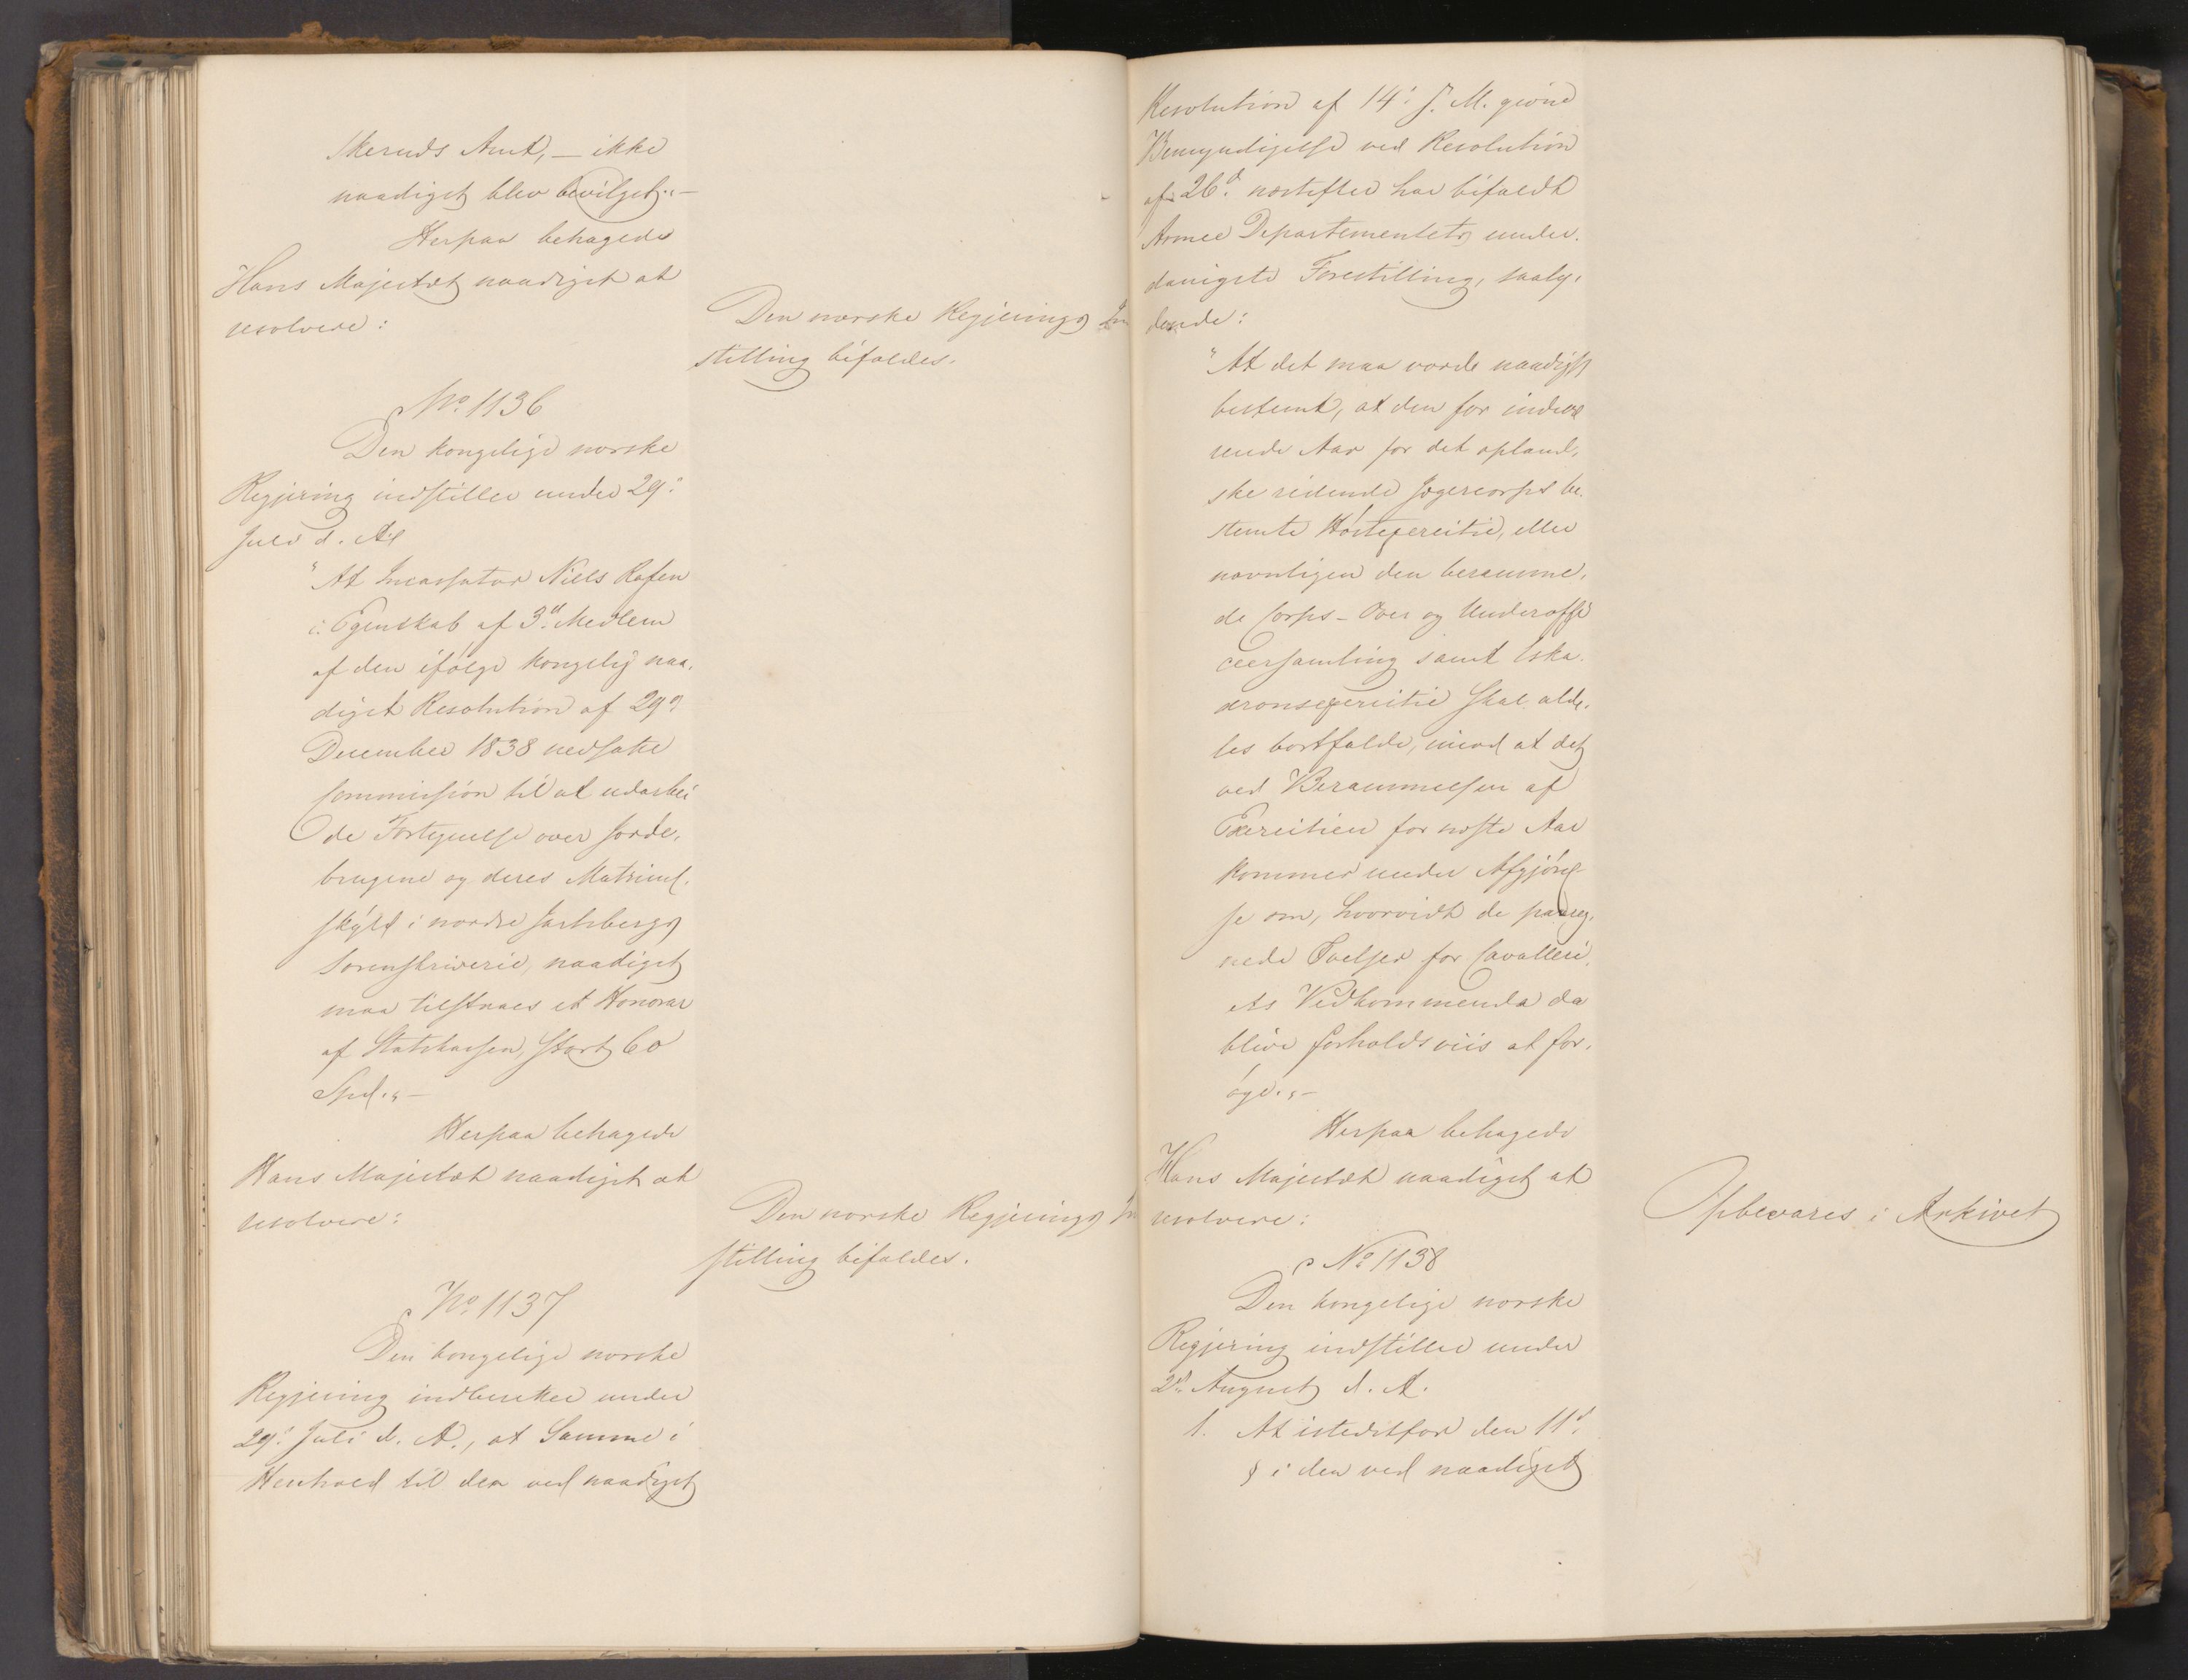 skeruds Amt, — ikke
naadigst blev bevilget."—
Herpaa behagede
Hans Majestæt naadigst at
resolvere:
Den norske Regjerings In
stilling bifaldes.
No. 1136
Den kongelige norske
Regjering indstiller under 29d.
Juli d. A.
"At Incassator Niels Rafen
i Egenskab af 3d. Medlem
af den ifølge kongelig naa-
digst Resolution af 29d.
December 1838 nedsatte
Commission til at udarbei
de Fortegnelse over Jorde-
brugene og deres Matriculs-
skyld i nordre Jarlsbergs
Sorenskriverie, naadigst
maa tilstaaes et Honorar
af Statskassen, stort 60
Spd."—
Herpaa behagede
Hans Majestæt naadigst at
resolvere:
Den norske Regjerings In
stilling bifaldes.
No. 1137
Den kongelige norske
Regjering indberetter under
29d. Juli d. A., at Samme i
Henhold til den ved naadigst
Resolution af 14d. f. M. givne
Bemyndigelse ved Resolution
af 26d. næstefter har bifaldt
Armee Departementets under-
danigste Forestilling, saaly-
dende:
"At det maa vorde naadigst
bestemt, at den for indevæ
rende Aar for det opland-
ske ridende Jægercorps be-
stemte Høstexercitie, eller
navnligen den berammе-
de Corps- Over og Underoffi
ceersamling samt Eska-
dronsexercitie skal alde-
les bortfalde, imod at det
ved Berammelsen af
Exercitien for næste Aar
kommer under Afgjørel-
se om, hvorvidt de paareg-
nede Øvelser for Cavalleri-
ets Vedkommende da
blive forholdsviis at for-
øge."—
Herpaa behagede
Hans Majestæt naadigst at
resolvere:
Opbevares i Arkivet
No. 1138
Den kongelige norske
Regjering indstiller under
2d. August d. A.
1. At istedetfor den 11d.
§ i den ved naadigst